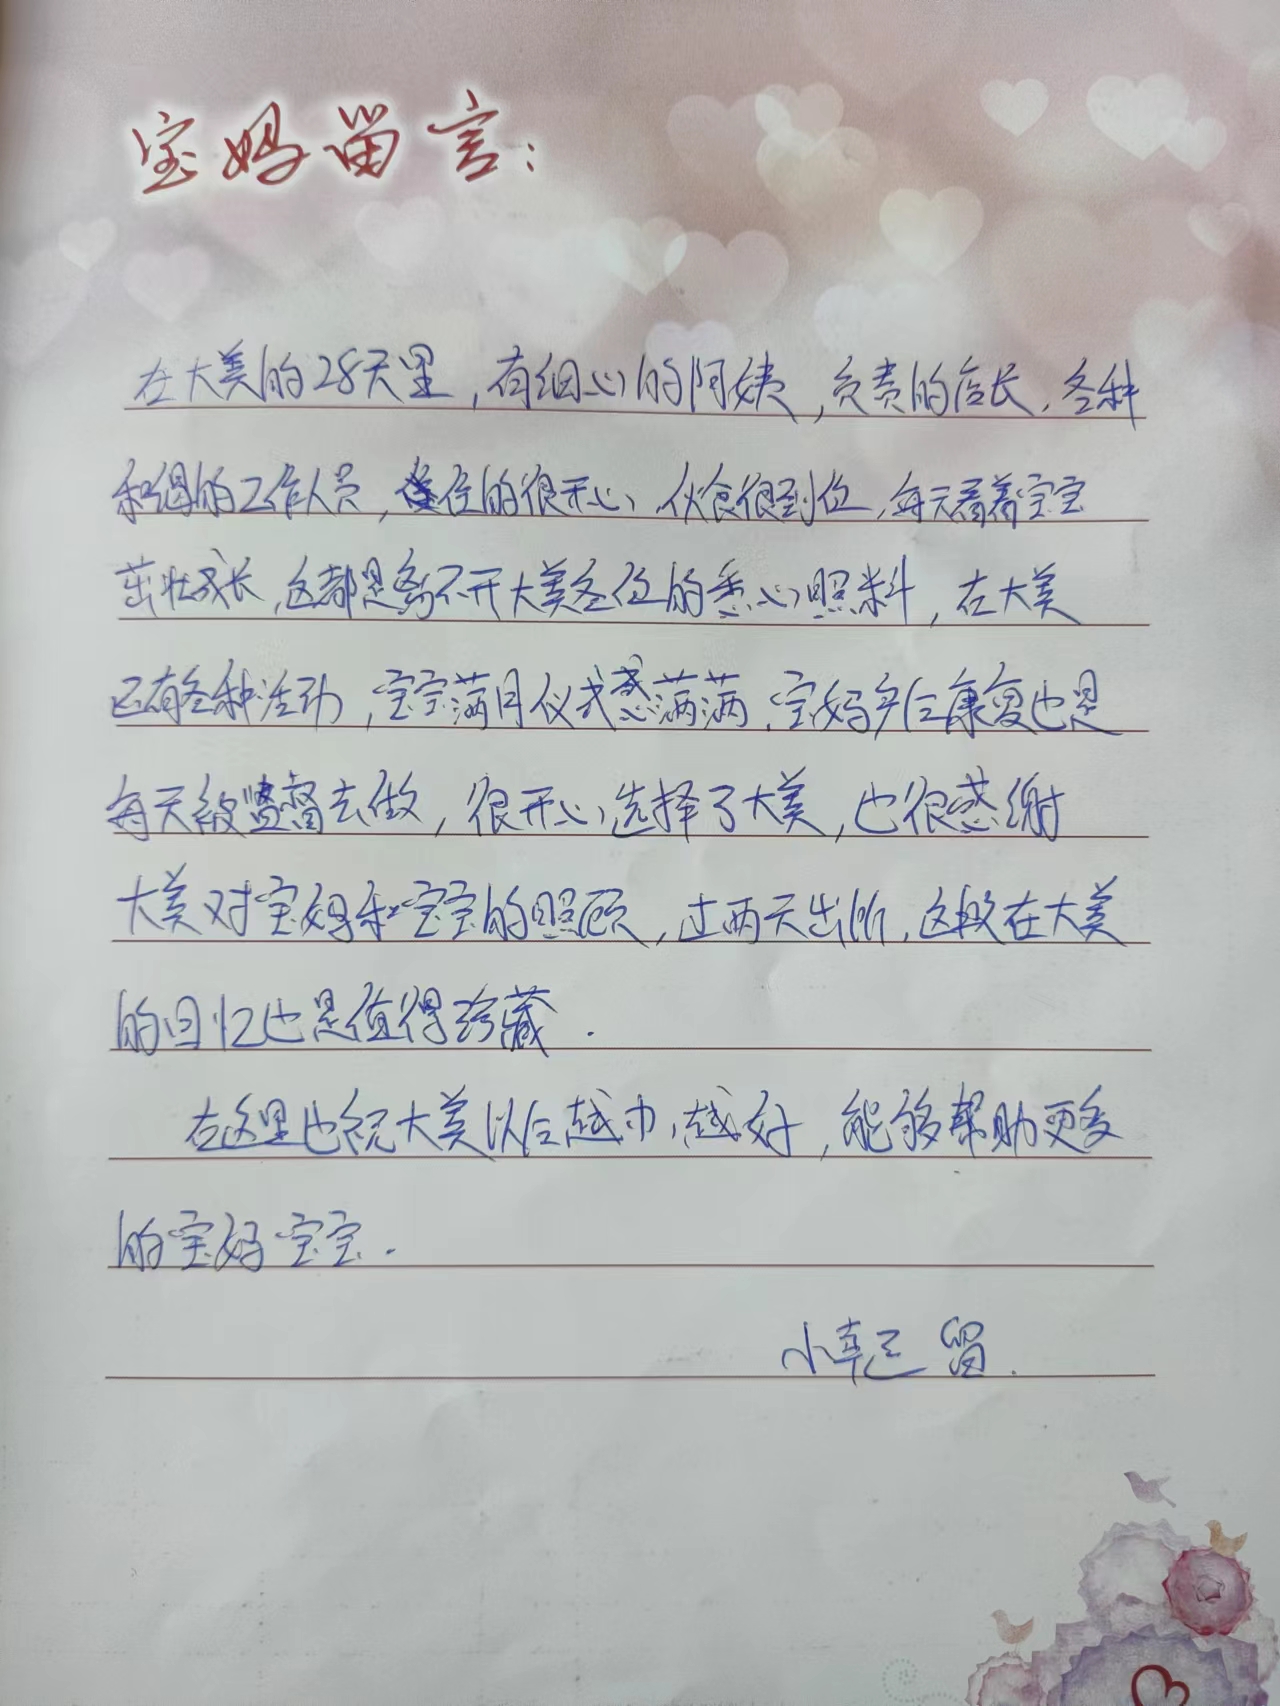 宝妈留言：
在大美的28天里，有细心的阿姨，负责的店长，各种
和谐的工作人员，住的很开心，伙食很到位，每天看着宝宝
茁壮成长，这都是离不开大美各位的悉心照料，在大美
还有各种活动，宝宝满月仪式感满满，宝妈产后康复也是
每天被监督去做，很开心选择了大美，也很感谢
大美对宝妈和宝宝的照顾，过两天出所，这段在大美
的回忆也是值得珍藏．
在这里也祝大美以后越办越好，能够帮助更多
的宝妈宝宝．
小 留．